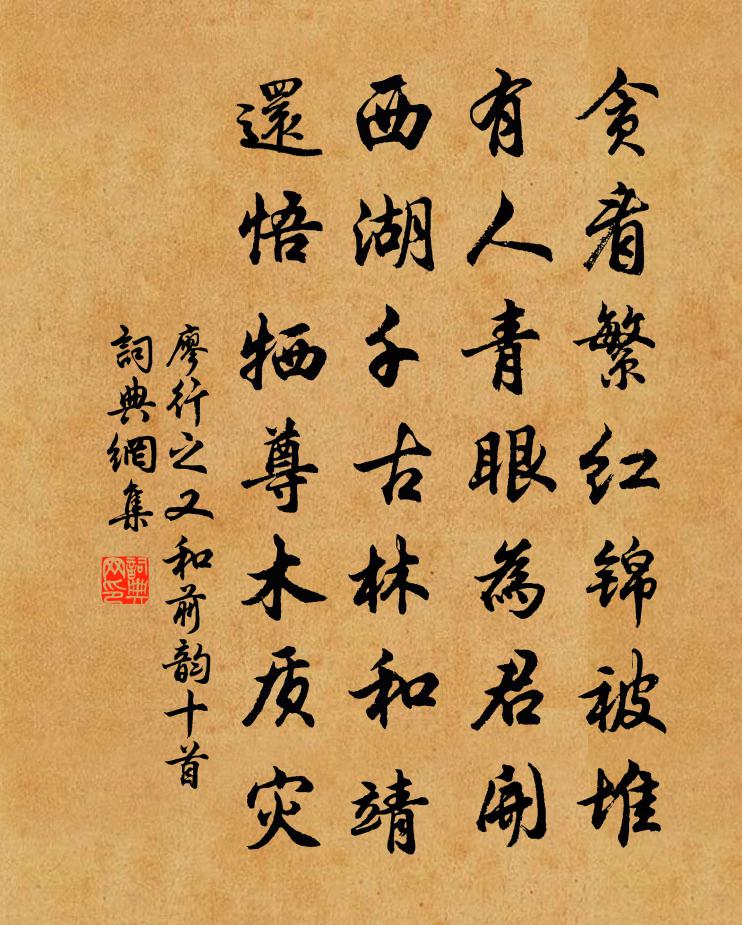 貪看繁红锦被堆
有人青眼為君開
西湖千古林和靖
還悟牺尊木质灾
廖行之又和前韵十首
詞典網集
詞典
网印